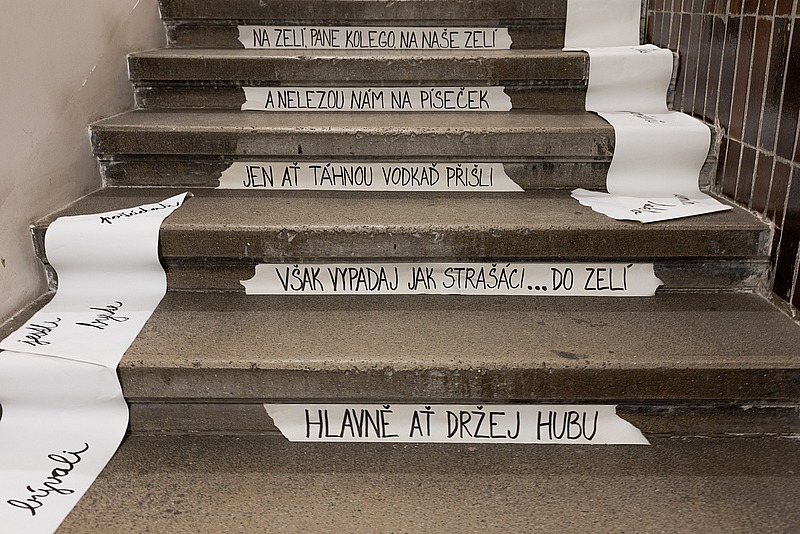 NA ZELÍ, PANE KOLEGO, NA NAŠE ZELÍ
A NELEZOU NÁM NA PÍSEČEK
JEN AŤ TÁHNOU VODKAĎ PŘIŠLI
VŠAK VYPADAJ JAK STRAŠÁCI...DO ZELÍ
HLAVNĚ AŤ DRŽEJ HUBU
jestli
bývali